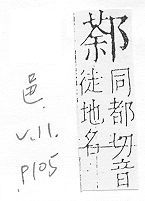 同都切音
徒地名
邑.
v.11.
p105